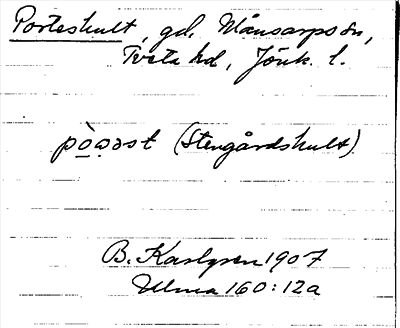 Porteshult, gd, Månsarps sn,
Tveta hd, Jönk. l.
pòwəst (Stengårdshult)
B. Karlgren 1907
Ulma 160:12a